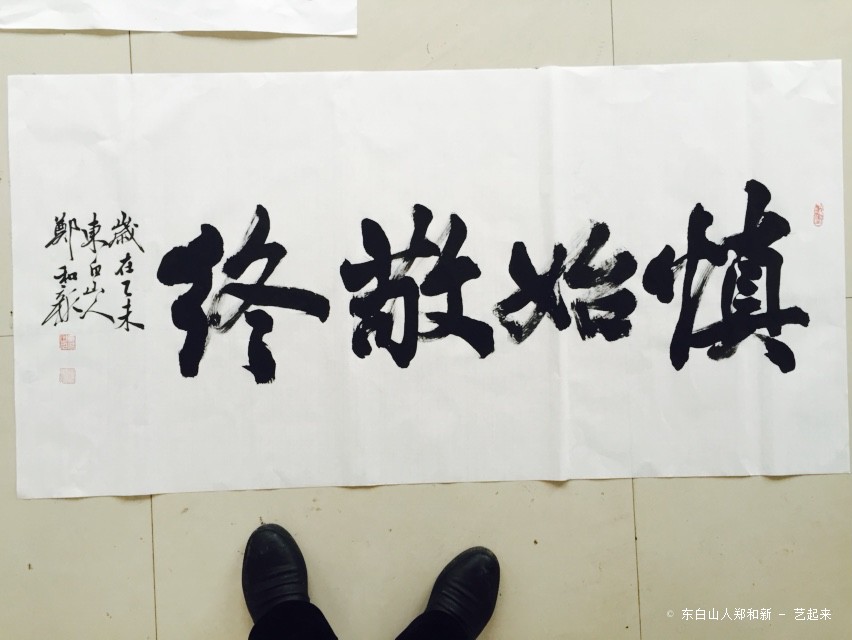 慎始敬终
歲在乙未
東白山人
鄭和新
© 东白山人郑和新 - 艺起来